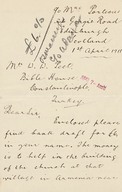 c/o Mrs Parlane
Gorgie Road
Edinburgh
Scotland
1st April
£6.0.0
Mr. W. W. Peet,
Bible House
Constantinople,
Turkey
Dear Sir,
Enclosed please
find bank draft for £6
in your name. The money
is to help in the building
of the church at that
village in Armenia near